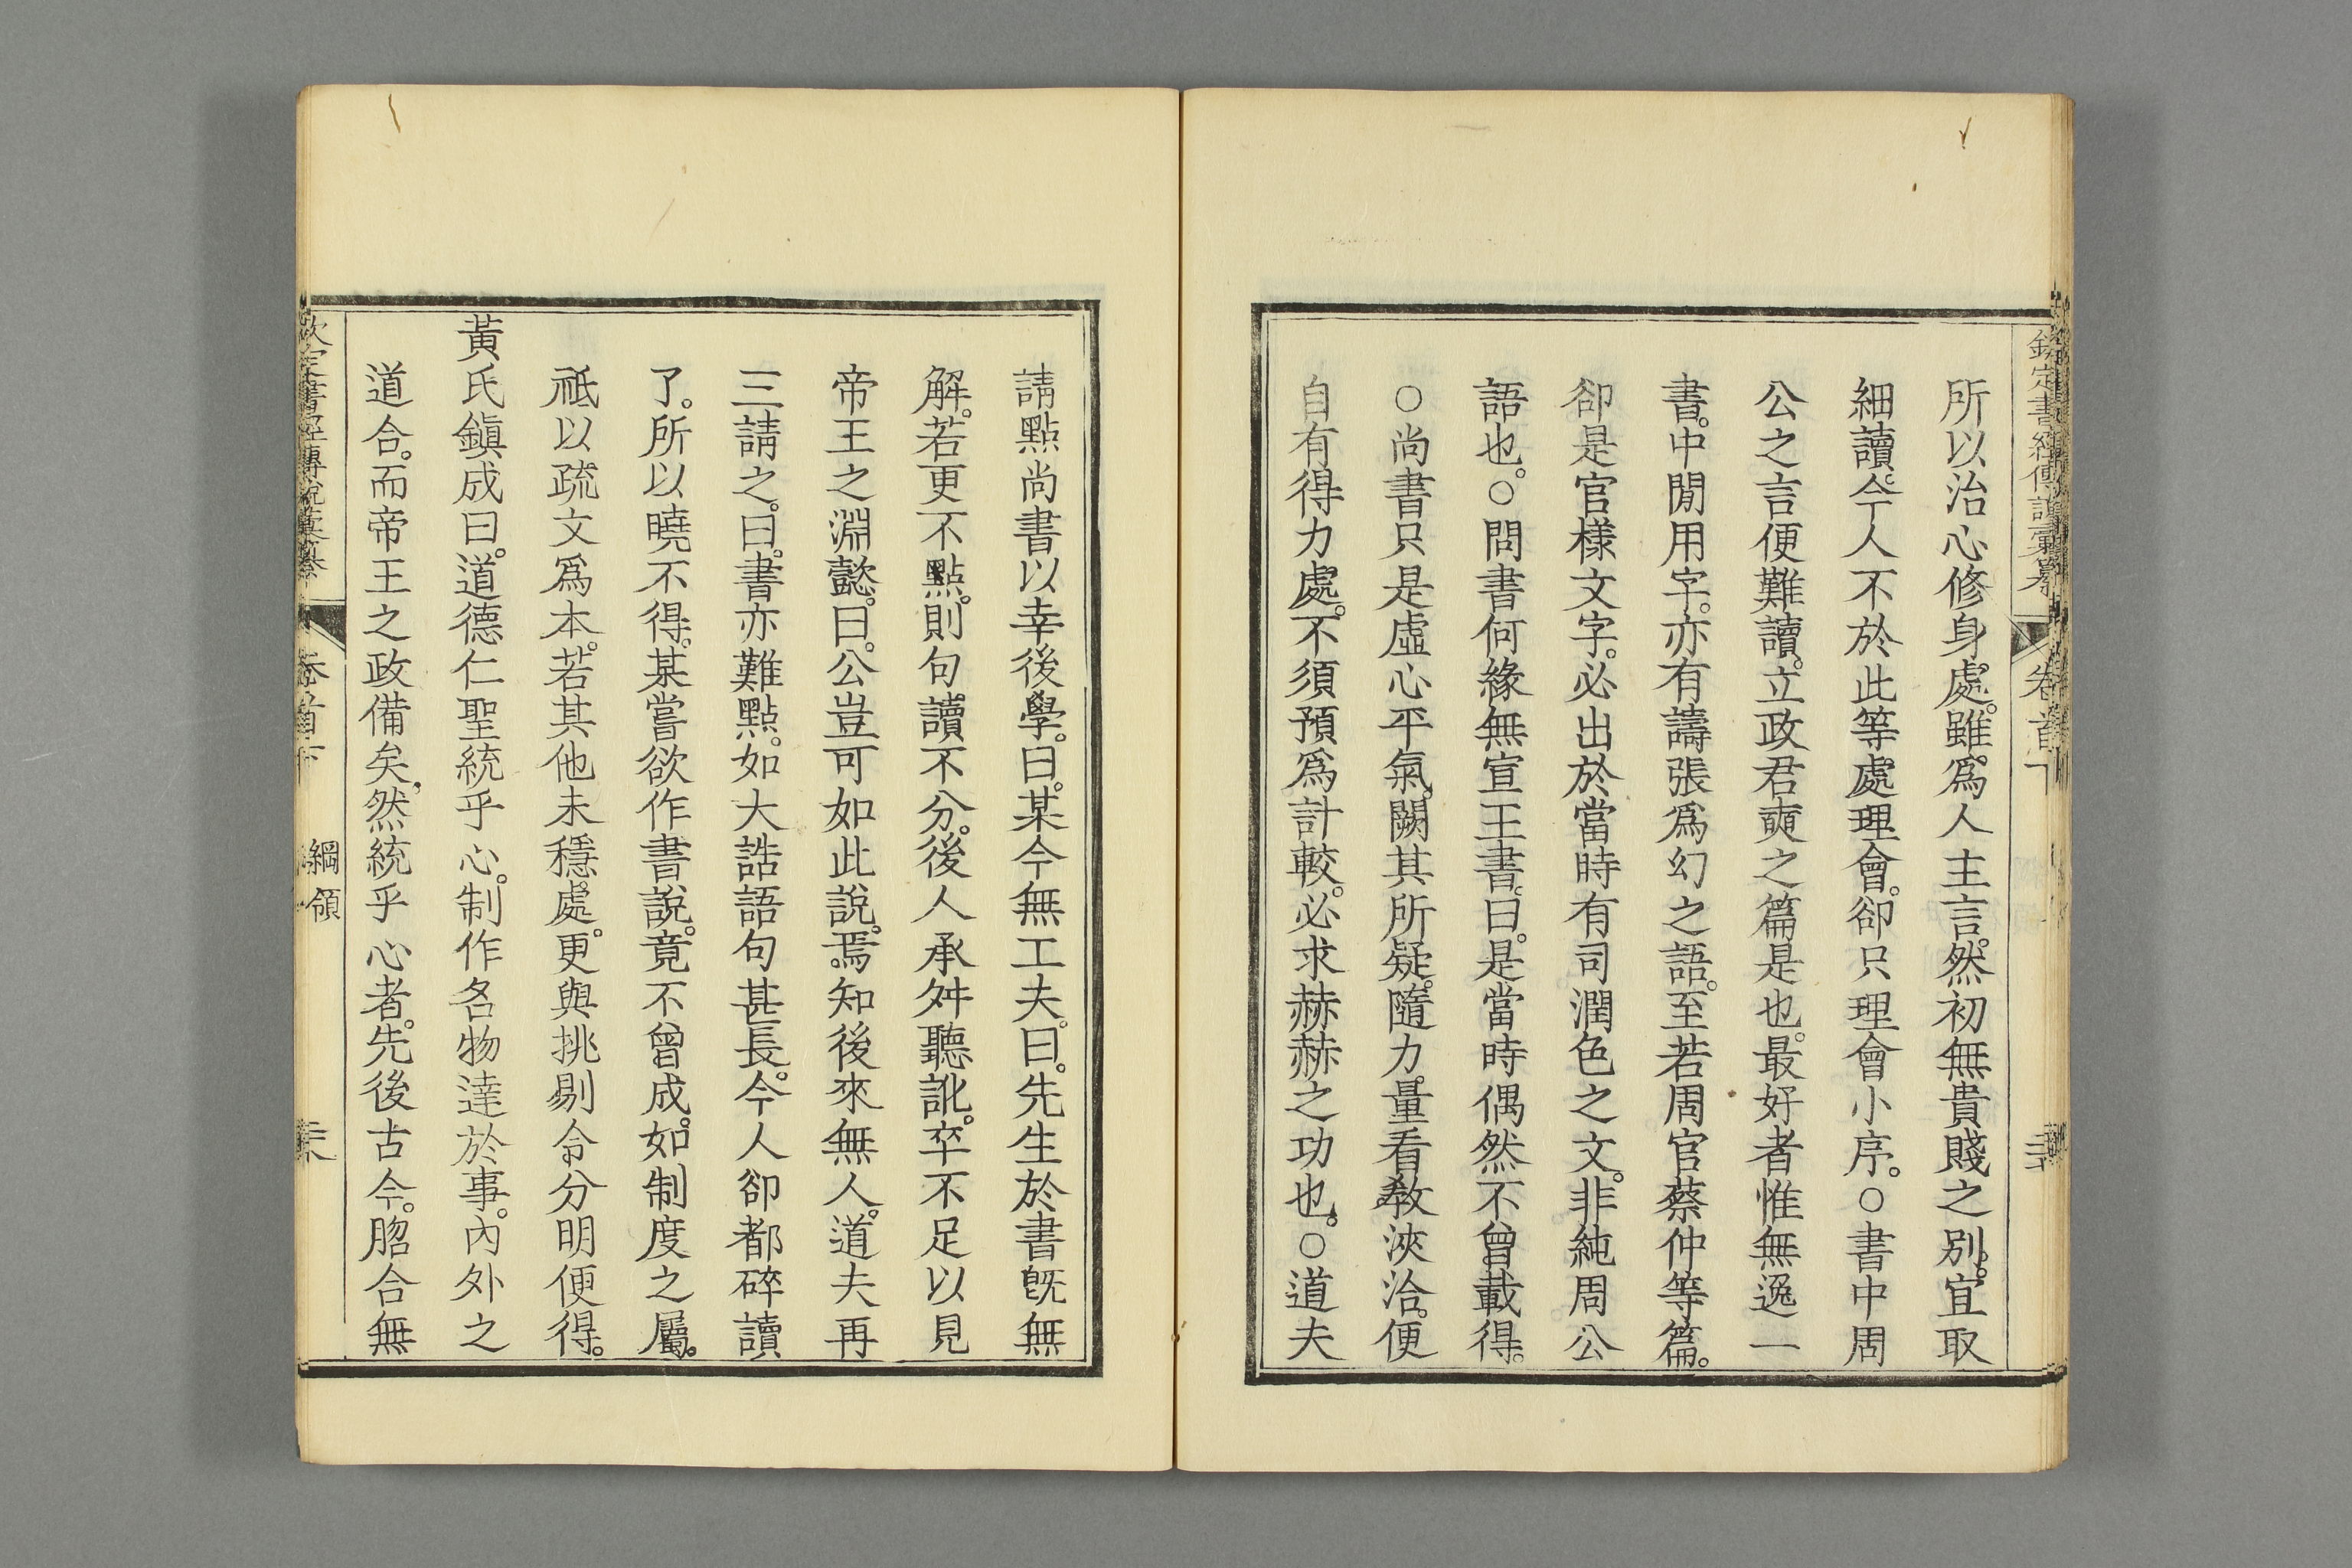 欽定書經傳說彙纂 卷首下
所以治心修身處。雖爲人主言。然初無貴賤之別。宜取
細讀。今人不於此等處理會。卻只理會小序。○書中周
公之言便難讀。立政君奭之篇是也。最好者惟無逸一
書。中閒用字。亦有譸張爲幻之語。至若周官蔡仲等篇。
卻是官樣文字。必出於當時有司潤色之文。非純周公
語也。○問書何緣無宣王書。曰。是當時偶然不曾載得。
○尚書只是虛心平氣。闕其所疑。隨力。量看敎浹洽。便
自有得力處。不須預爲計較。必求赫赫之功也。○道夫
請點尚書以幸後學。曰。某今無工夫。曰。先生於書旣無
解。若更不點。則句讀不分。後人承舛聽訛。卒不足以見
帝王之淵懿。曰。公豈可如此說。焉。知後來無人。道夫再
三請之。曰。書亦難點。如大誥語句甚長。今人卻都碎讀
了。所以曉不得。某嘗欲作書說。竟不曾成。如制度之屬。
祗以疏文爲本。若其他未穩處。更與挑剔令分明便得。
黃氏鎭成曰。道德仁聖統乎心。制作名物達於事。內外之
道合。而帝王之政備矣。然統乎心者。先後古今。脗合無
欽定書經傳說彙纂 卷首下 綱領